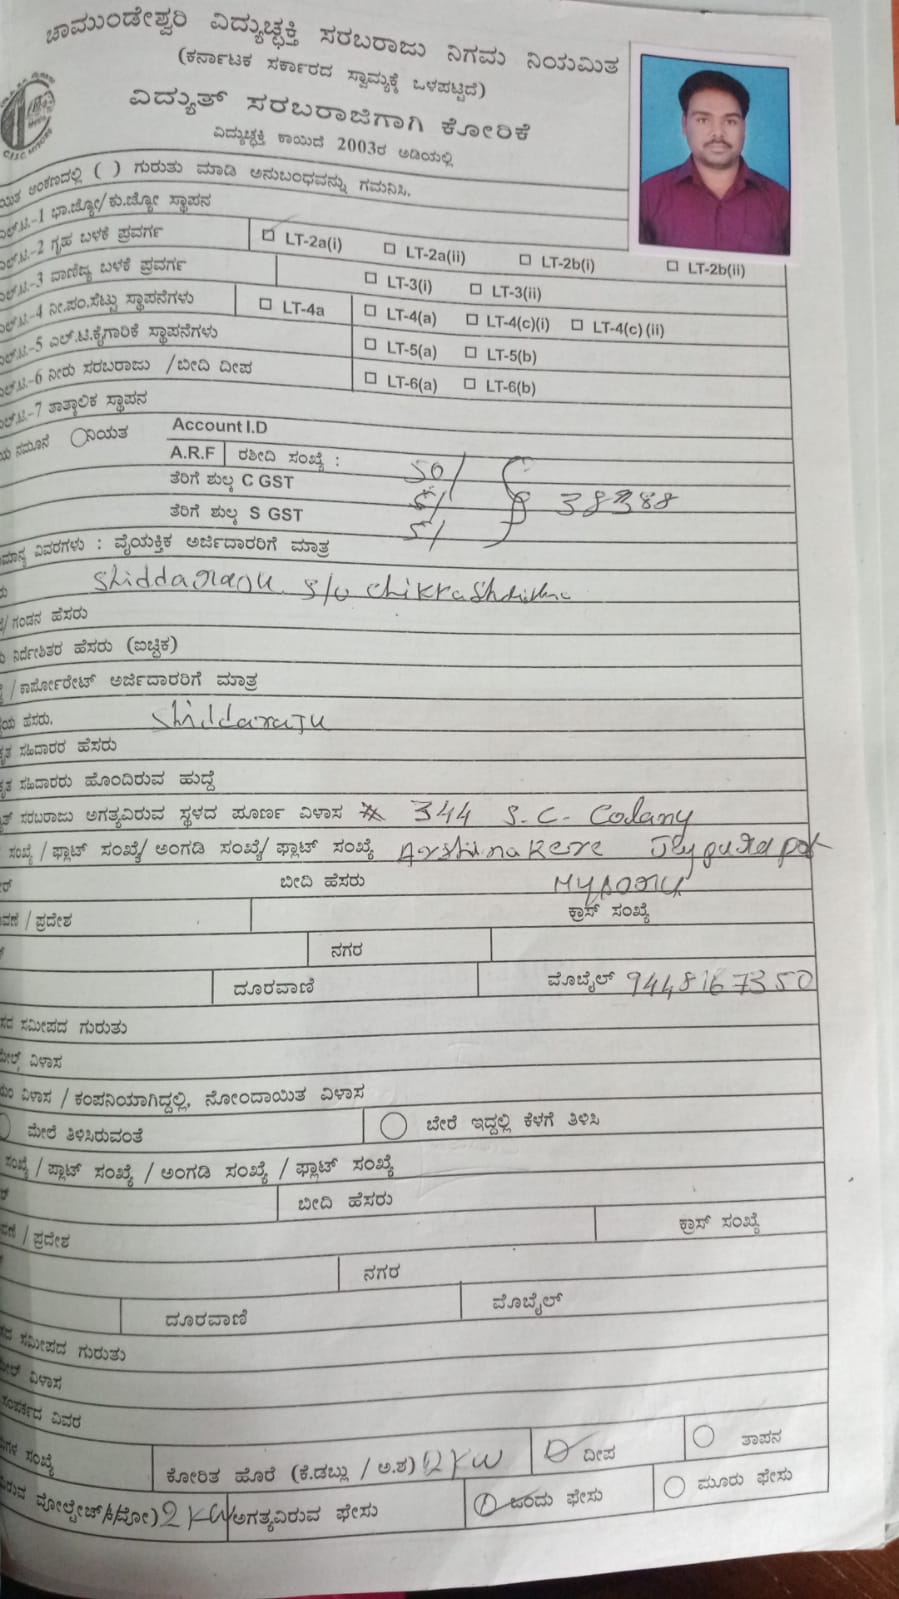 ಚಾಮುಂಡೇಶ್ವರಿ ವಿದ್ಯುಚ್ಛಕ್ತಿ ಸರಬರಾಜು ನಿಗಮ ನಿಯಮಿತ
(ಕರ್ನಾಟಕ ಸರ್ಕಾರದ ಸ್ವಾಮ್ಯಕ್ಕೆ ಒಳಪಟ್ಟಿದೆ)
ವಿದ್ಯುತ್ ಸರಬರಾಜಿಗಾಗಿ ಕೋರಿಕೆ
ವಿದ್ಯುಚ್ಛಕ್ತಿ ಕಾಯಿದೆ 2003ರ ಅಡಿಯಲ್ಲಿ
ಅಂಕಣದಲ್ಲಿ ( ) ಗುರುತು ಮಾಡಿ ಅನುಬಂಧವನ್ನು ಗಮನಿಸಿ.
-1 ಭಾ.ಜ್ಯೋ/ಕು.ಜ್ಯೋ ಸ್ಥಾಪನ
-2 ಗೃಹ ಬಳಕೆ ಪ್ರವರ್ಗ LT-2a(i) LT-2a(ii) LT-2b(i) LT-2b(ii)
-3 ವಾಣಿಜ್ಯ ಬಳಕೆ ಪ್ರವರ್ಗ LT-3(i) LT-3(ii)
-4 ನೀ.ಪಂ.ಸೆಟ್ಟು ಸ್ಥಾಪನೆಗಳು LT-4a LT-4(a) LT-4(c)(i) LT-4(c)(ii)
-5 ಎಲ್.ಟಿ.ಕೈಗಾರಿಕೆ ಸ್ಥಾಪನೆಗಳು LT-5(a) LT-5(b)
-6 ನೀರು ಸರಬರಾಜು /ಬೀದಿ ದೀಪ LT-6(a) LT-6(b)
-7 ತಾತ್ಕಾಲಿಕ ಸ್ಥಾಪನ
ನಮೂನೆ ನಿಯತ Account I.D
A.R.F ರಶೀದಿ ಸಂಖ್ಯೆ :
ತೆರಿಗೆ ಶುಲ್ಕ C GST 50/
ತೆರಿಗೆ ಶುಲ್ಕ S GST 5/ 38388
5/
ವಿವರಗಳು : ವೈಯಕ್ತಿಕ ಅರ್ಜಿದಾರರಿಗೆ ಮಾತ್ರ
Shiddaraju S/o
/ ಗಂಡನ ಹೆಸರು
ನಿರ್ದೇಶಿತರ ಹೆಸರು (ಐಚ್ಛಿಕ)
/ ಕಾರ್ಪೋರೇಟ್ ಅರ್ಜಿದಾರರಿಗೆ ಮಾತ್ರ
ಹೆಸರು. Shiddaraju
ಸಹಿದಾರರ ಹೆಸರು
ಸಹಿದಾರರು ಹೊಂದಿರುವ ಹುದ್ದೆ
ಸರಬರಾಜು ಅಗತ್ಯವಿರುವ ಸ್ಥಳದ ಪೂರ್ಣ ವಿಳಾಸ 344 S.C. Colany
ಸಂಖ್ಯೆ / ಫ್ಲಾಟ್ ಸಂಖ್ಯೆ/ ಅಂಗಡಿ ಸಂಖ್ಯೆ/ ಫ್ಲಾಟ್ ಸಂಖ್ಯೆ Arshinakere
ಬೀದಿ ಹೆಸರು
/ ಪ್ರದೇಶ ಕ್ರಾಸ್ ಸಂಖ್ಯೆ
ನಗರ
ದೂರವಾಣಿ ಮೊಬೈಲ್ 9448167350
ಸಮೀಪದ ಗುರುತು
ವಿಳಾಸ
ವಿಳಾಸ / ಕಂಪನಿಯಾಗಿದ್ದಲ್ಲಿ, ನೋಂದಾಯಿತ ವಿಳಾಸ
ಮೇಲೆ ತಿಳಿಸಿರುವಂತೆ ಬೇರೆ ಇದ್ದಲ್ಲಿ ಕೆಳಗೆ ತಿಳಿಸಿ
ಸಂಖ್ಯೆ / ಪ್ಲಾಟ್ ಸಂಖ್ಯೆ / ಅಂಗಡಿ ಸಂಖ್ಯೆ / ಫ್ಲಾಟ್ ಸಂಖ್ಯೆ
ಬೀದಿ ಹೆಸರು
/ ಪ್ರದೇಶ ಕ್ರಾಸ್ ಸಂಖ್ಯೆ
ನಗರ
ದೂರವಾಣಿ ಮೊಬೈಲ್
ಸಮೀಪದ ಗುರುತು
ವಿಳಾಸ
ಸಂಪರ್ಕದ ವಿವರ
ಸಂಖ್ಯೆ ಕೋರಿತ ಹೊರೆ (ಕೆ.ಡಬ್ಲು / ಅ.ಶ) 2 KW ದೀಪ ತಾಪನ
2 KW ಅಗತ್ಯವಿರುವ ಫೇಸು ಒಂದು ಫೇಸು ಮೂರು ಫೇಸು